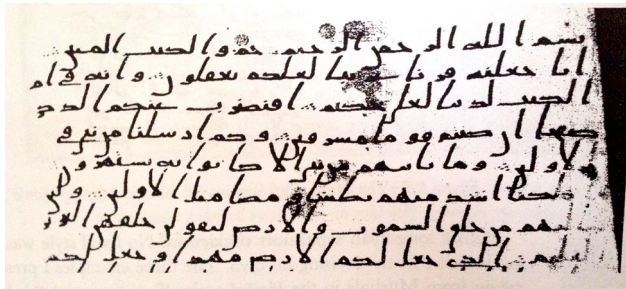 بسم الله الرحمن الرحيم حم والكتب المبين
انا جعلنه قرنا عربيا لعلكم تعقلون وانه في ام
الكتب لدينا لعلي حكيم افنضرب عنكم الذكر
صفحا ان كنتم قوما مسرفين وكم ارسلنا من نبي في
الاولين وما ياتيهم من نبي الا كانوا به يستهزون
اشد منهم بطشا ومضى مثل الاولين ولئن
من خلق السموت والارض ليقولن خلقهن
العليم الذي جعل لكم الارض مهدا وجعل لكم